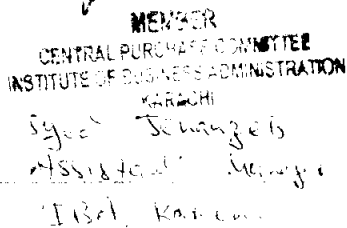 MEMBER
CENTRAL PURCHASE COMMITTEE
INSTITUTE OF BUSINESS ADMINISTRATION
KARACHI
Syed Jehanzeb
Assistant Manager
IBA, Karachi